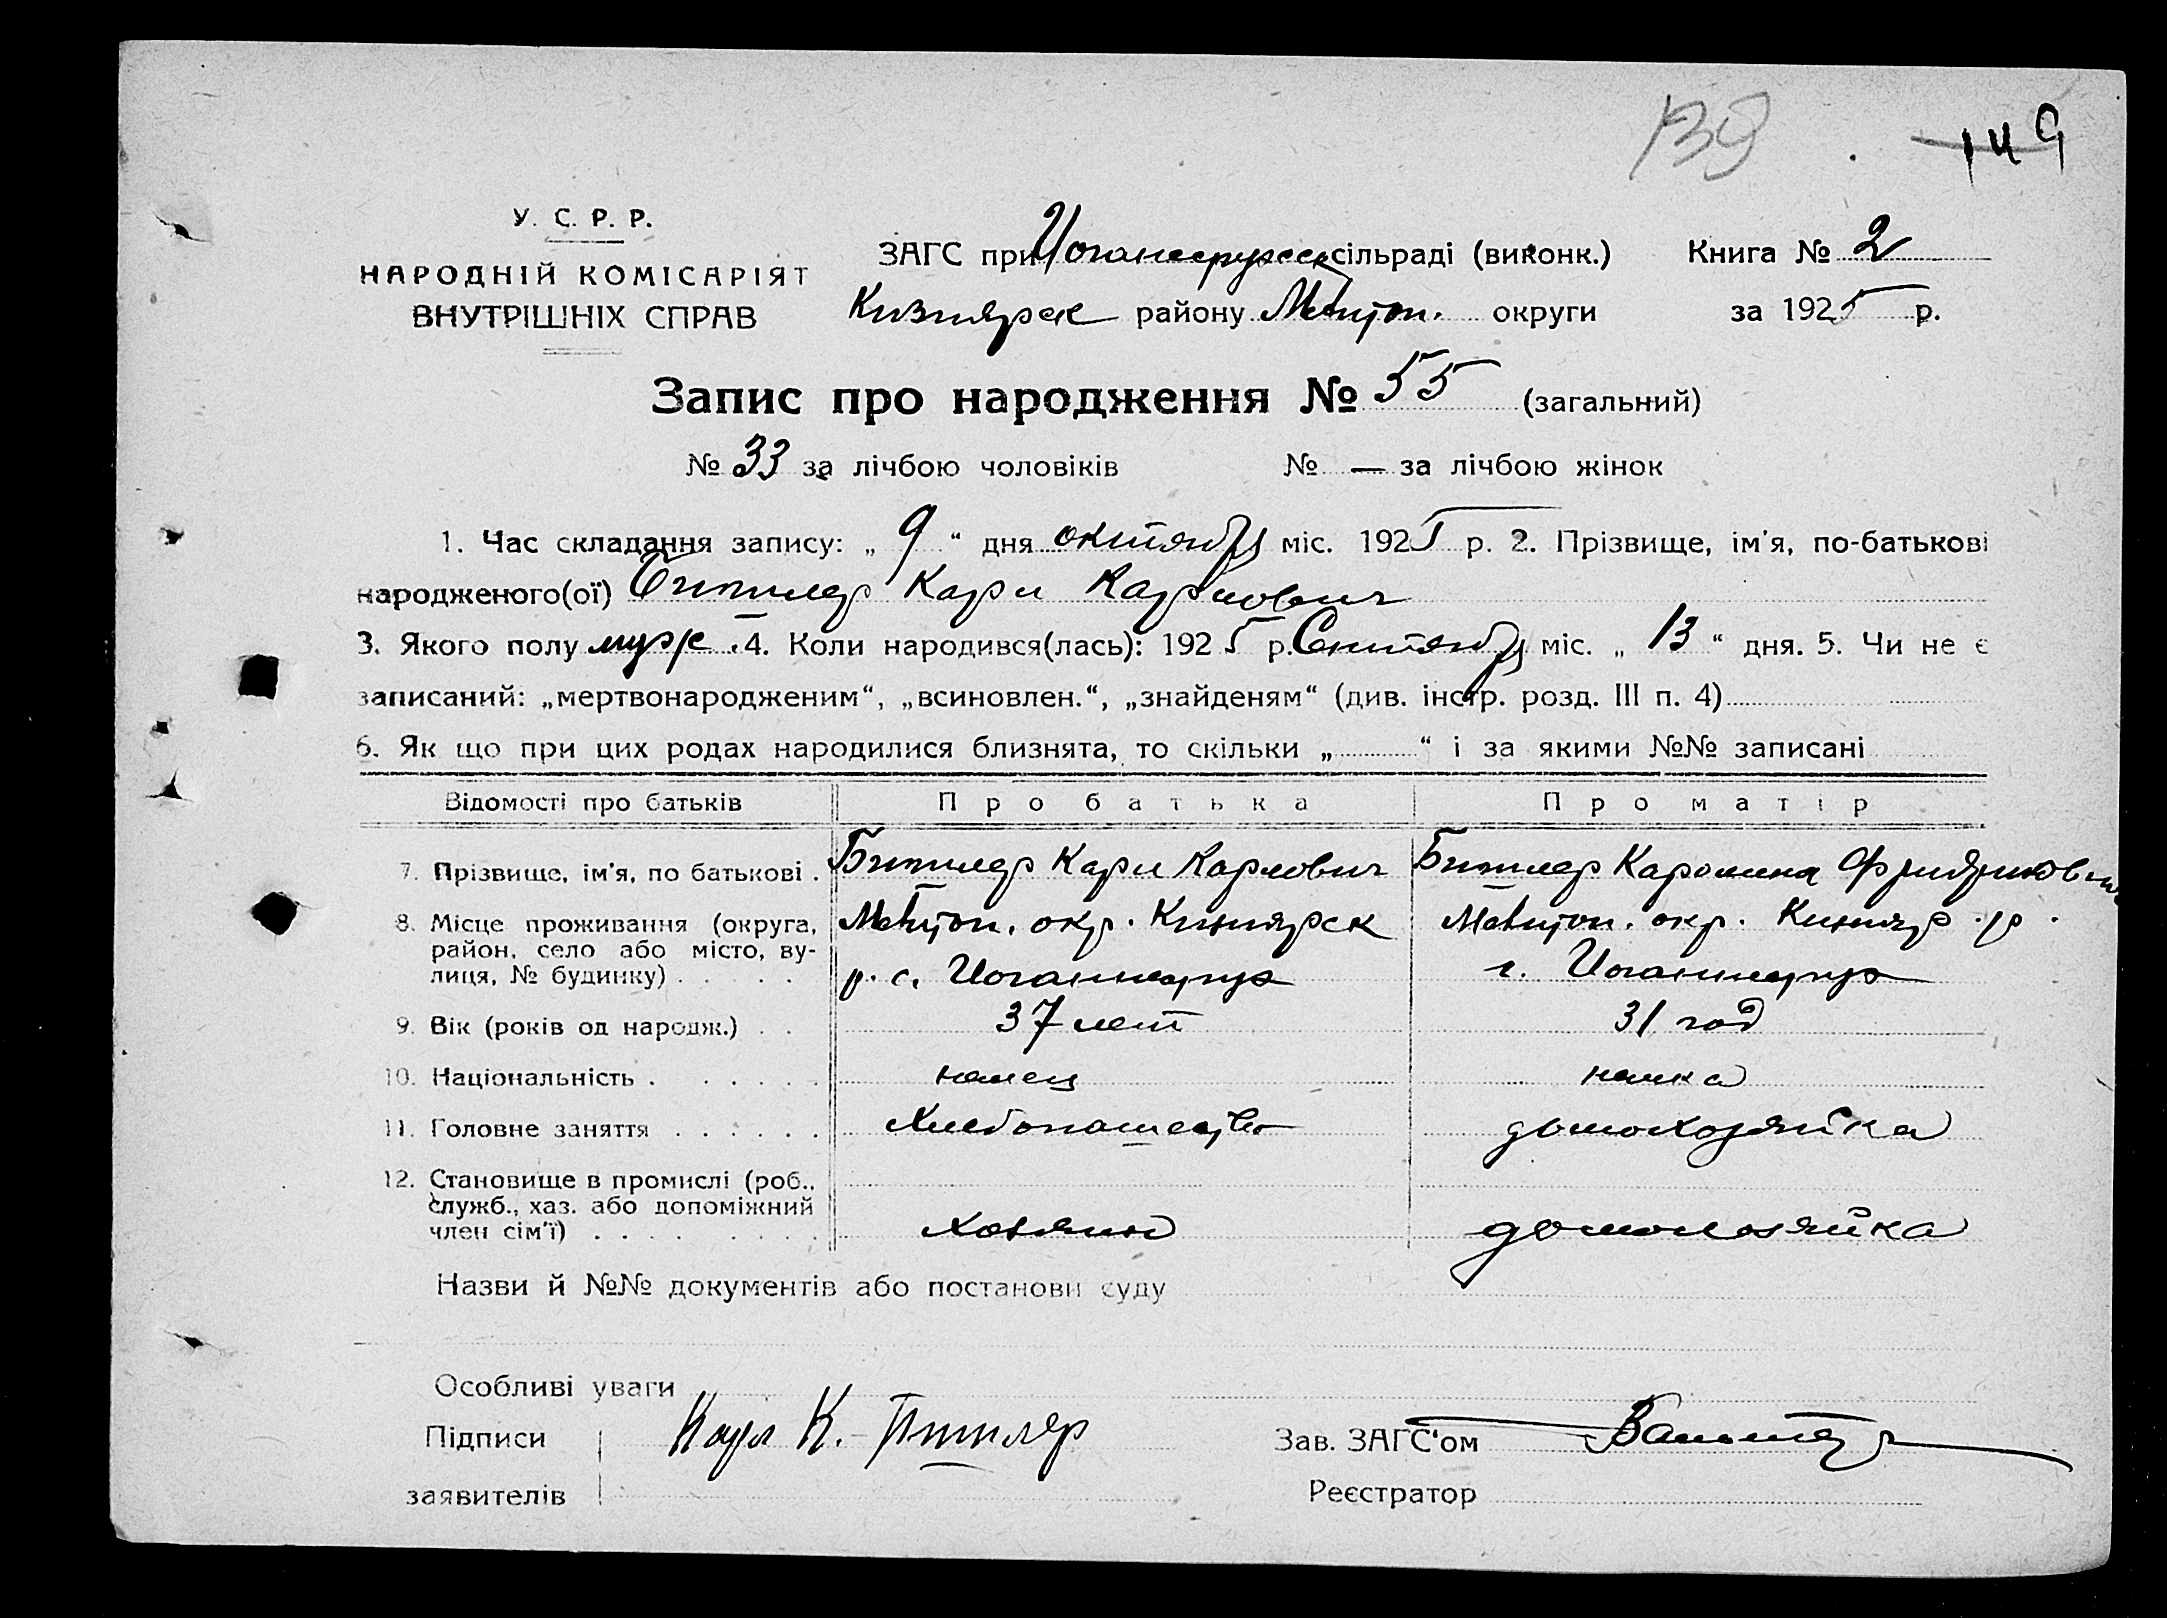 139 149
У. С. Р. Р.
НАРОДНІЙ КОМІСАРІЯТ
ВНУТРІШНІХ СПРАВ
ЗАГС при сільраді (виконк.) Книга № 2
району Мелитоп. округи за 1925 р.
Запис про народження № 55 (загальний)
№ 33 за лічбою чоловіків № — за лічбою жінок
1. Час складання запису: „ 9 “ дня октября міс. 1925 р. 2. Прізвище, ім'я, по-батькові
народженого(ої) Битлер Карл Карлович
3. Якого полу муж. 4. Коли народився(лась): 1925 р. Сентября міс. „ 13 “ дня. 5. Чи не є
записаний: „мертвонародженим“, „всиновлен.“, „знайденям“ (див. інстр. розд. III п. 4)
6. Як що при цих родах народилися близнята, то скільки „ “ і за якими №№ записані
Відомості про батьків Про батька Про матір
7. Прізвище, ім'я, по батькові . Битлер Карл Карлович Битлер Каролина Фридриховна
8. Місце проживання (округа, район, село або місто, вулиця, № будинку) . . . . .
Мелитоп. окр. Мелитоп. окр. р.
р. с. Иоганнесру с. Иоганнесру
9. Вік (років од народж.) . . 37 лет 31 год
10. Національність . . . . . . немец немка
11. Головне заняття . . . . . . Хлебопашество домохозяйка
12. Становище в промислі (роб., служб., хаз. або допоміжний член сім'ї) . . . . . . . . хозяин домохозяйка
Назви й №№ документів або постанови суду
Особливі уваги
Підписи Карл К. Зав. ЗАГС'ом
заявителів Реєстратор